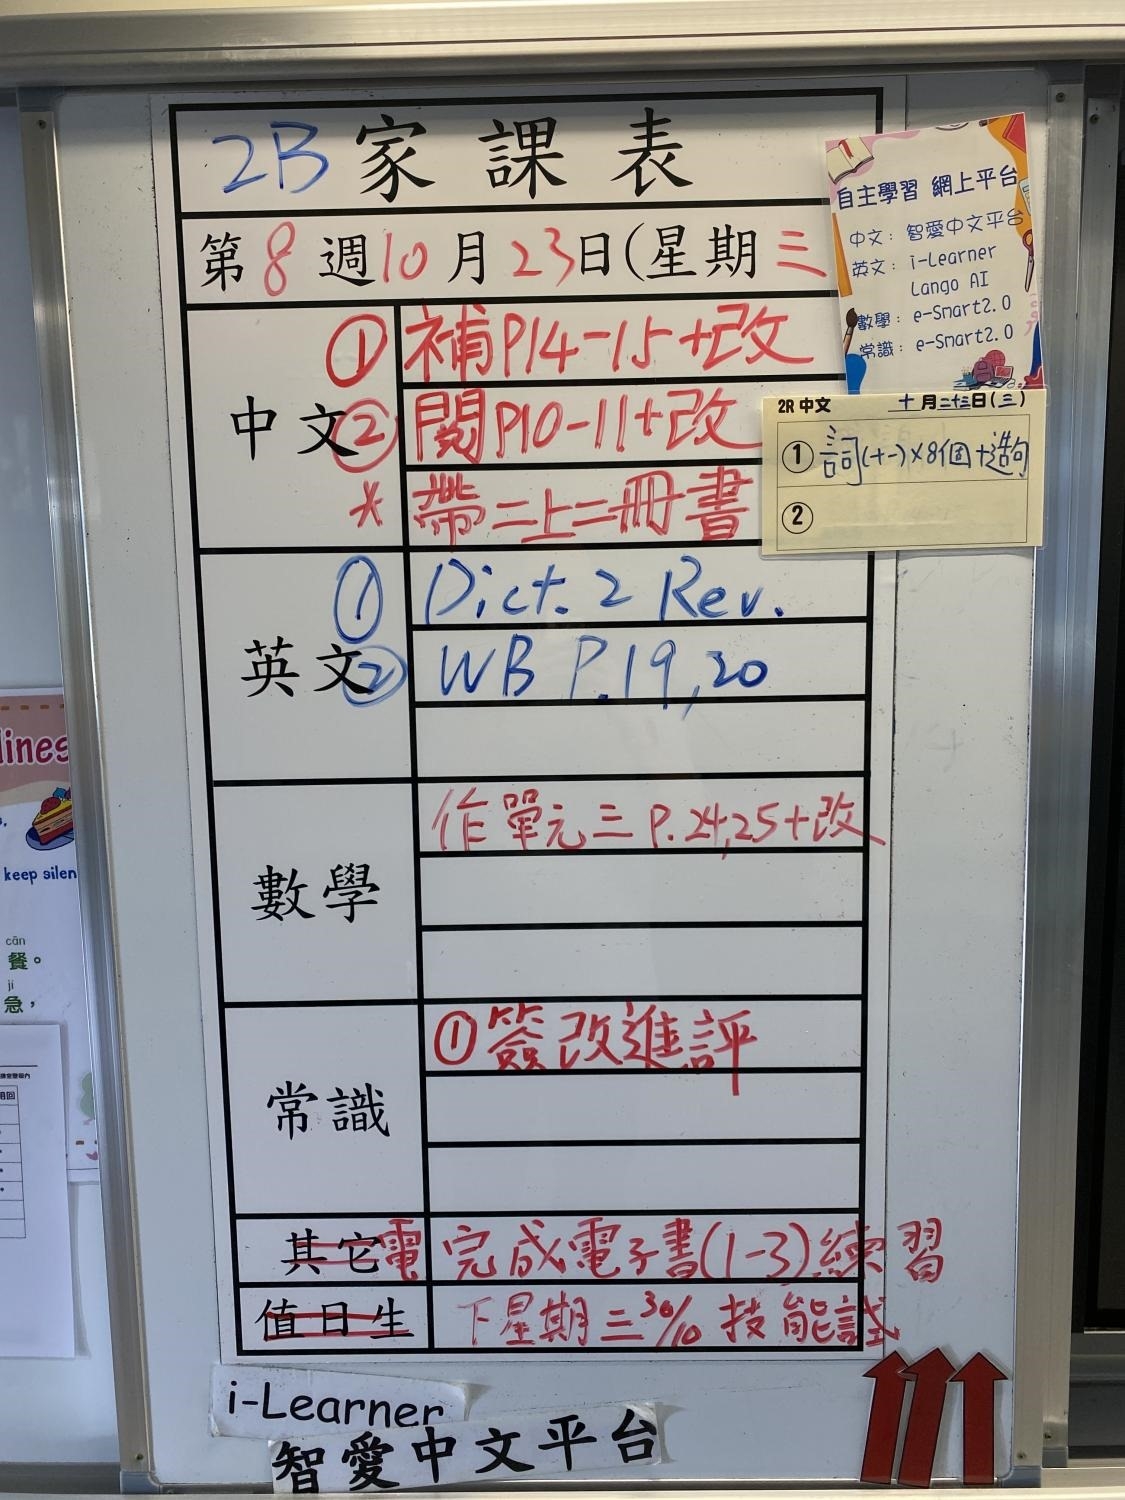 2B 家課表
第8週10月23日(星期三
中文
① 補P14-15+改
② 閱P10-11+改
* 帶二上二冊書
英文
① Dict. 2 Rev.
② WB P.19,20
數學
作單元三 P.24,25+改
常識
①簽改進評
其它電
完成電子書(1-3)練習
值日生
下星期三30/10 技能試
i-Learner
智愛中文平台
自主學習 網上平台
中文: 智愛中文平台
英文: i-Learner
Lango AI
數學: e-Smart2.0
常識: e-Smart2.0
2R 中文 十月二十三日(三)
① 詞(十一)×8個+造句
②
lines
keep silen
cān
餐。
jí
急,